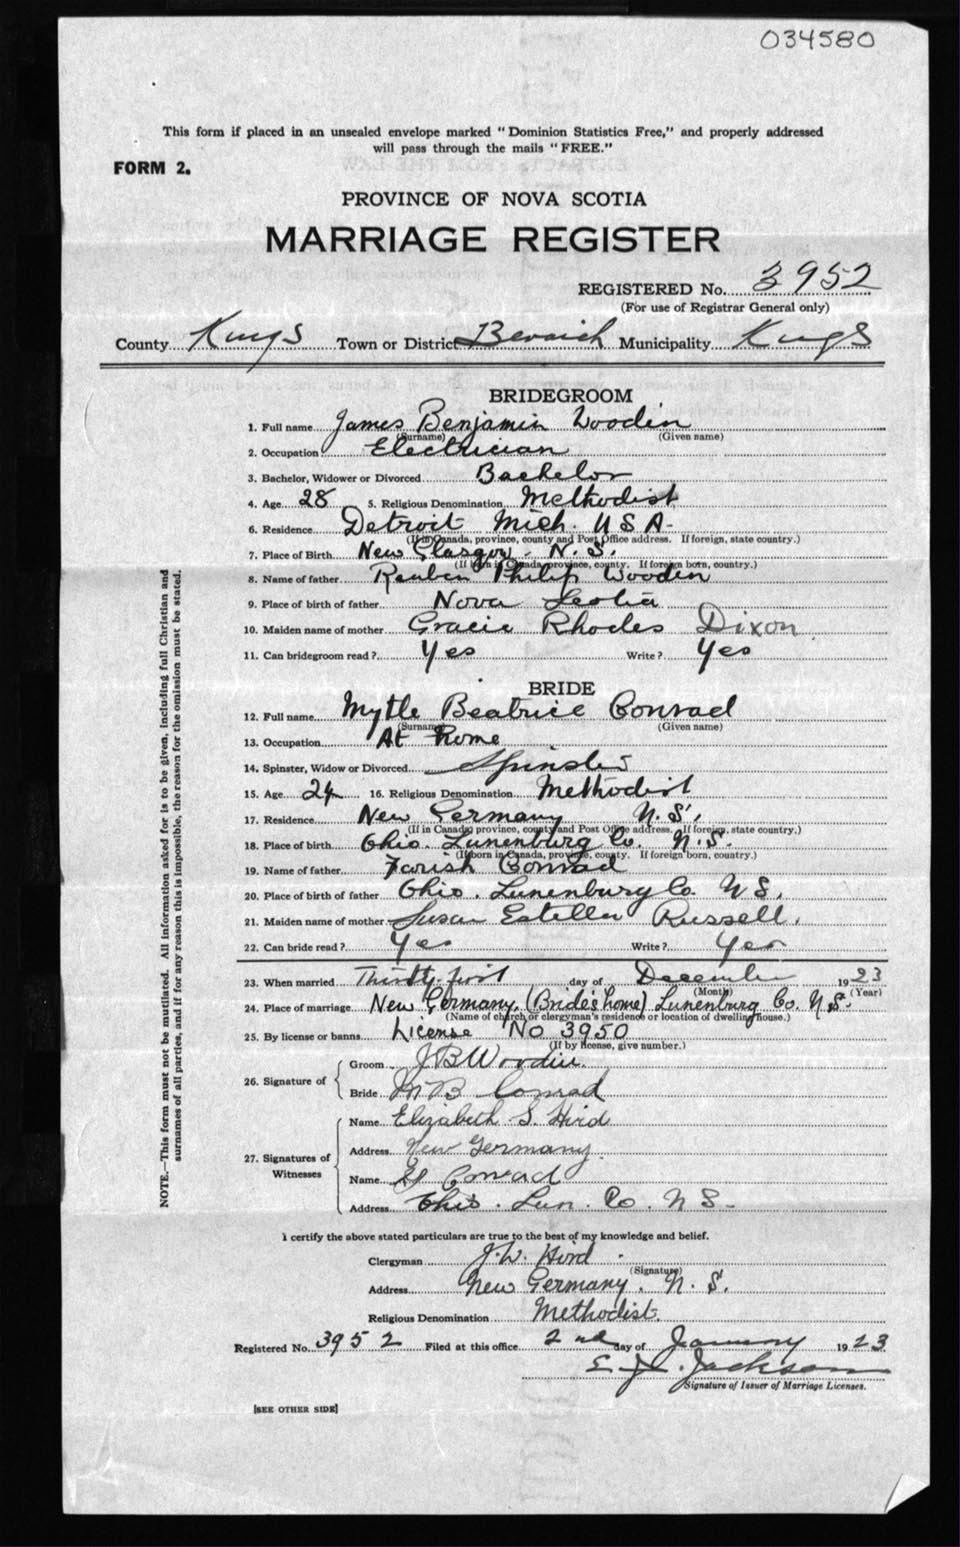 034580
This form if placed in an unsealed envelope marked "Dominion Statistics Free," and properly addressed
will pass through the mails "FREE."
FORM 2.
PROVINCE OF NOVA SCOTIA
MARRIAGE REGISTER
REGISTERED No. 3952
(For use of Registrar General only)
County Kings Town or District Berwick Municipality Kings
BRIDEGROOM
1. Full name James Benjamin Woodin
(Surname) (Given name)
2. Occupation Electrician
3. Bachelor, Widower or Divorced Bachelor
4. Age 28 5. Religious Denomination Methodist
6. Residence Detroit Mich. U S A-
(If in Canada, province, county and Post Office address. If foreign, state country.)
7. Place of Birth New Glasgow. N. S.
(If born in Canada, province, county. If foreign born, country.)
8. Name of father Reuben Philip Wooden
9. Place of birth of father Nova Scotia
10. Maiden name of mother Gracie Rhodes Dixon
11. Can bridegroom read? Yes Write? Yes
BRIDE
12. Full name Mytle Beatrice Conrad
(Surname) (Given name)
13. Occupation At Home
14. Spinster, Widow or Divorced Spinster
15. Age 24 16. Religious Denomination Methodist
17. Residence New Germany N. S.
(If in Canada, province, county and Post Office address. If foreign, state country.)
18. Place of birth Ohio. Lunenburg Co. N. S.
(If born in Canada, province, county. If foreign born, country.)
19. Name of father Farish Conrad
20. Place of birth of father Ohio. Lunenburg Co. N S.
21. Maiden name of mother Susan Estella Russell.
22. Can bride read? Yes Write? Yes
23. When married Thirty-first day of December 1923
(Month) (Year)
24. Place of marriage New Germany, (Brides home) Lunenburg Co. N. S.
(Name of church or clergyman's residence or location of dwelling house.)
25. By license or banns License No 3950
(If by license, give number.)
26. Signature of
Groom J B Woodin.
Bride M B Conrad
27. Signatures of Witnesses
Name Elizabeth S. Hird
Address New Germany.
Name Conrad
Address Ohio. Lun. Co. N S.
I certify the above stated particulars are true to the best of my knowledge and belief.
Clergyman J. W. Hird
(Signature)
Address New Germany. N. S.
Religious Denomination Methodist.
Registered No. 3952 Filed at this office 2nd day of January 1923
E. J. Jackson
Signature of Issuer of Marriage Licenses.
[SEE OTHER SIDE]
NOTE.—This form must not be mutilated. All information asked for is to be given, including full Christian and
surnames of all parties, and if for any reason this is impossible, the reason for the omission must be stated.